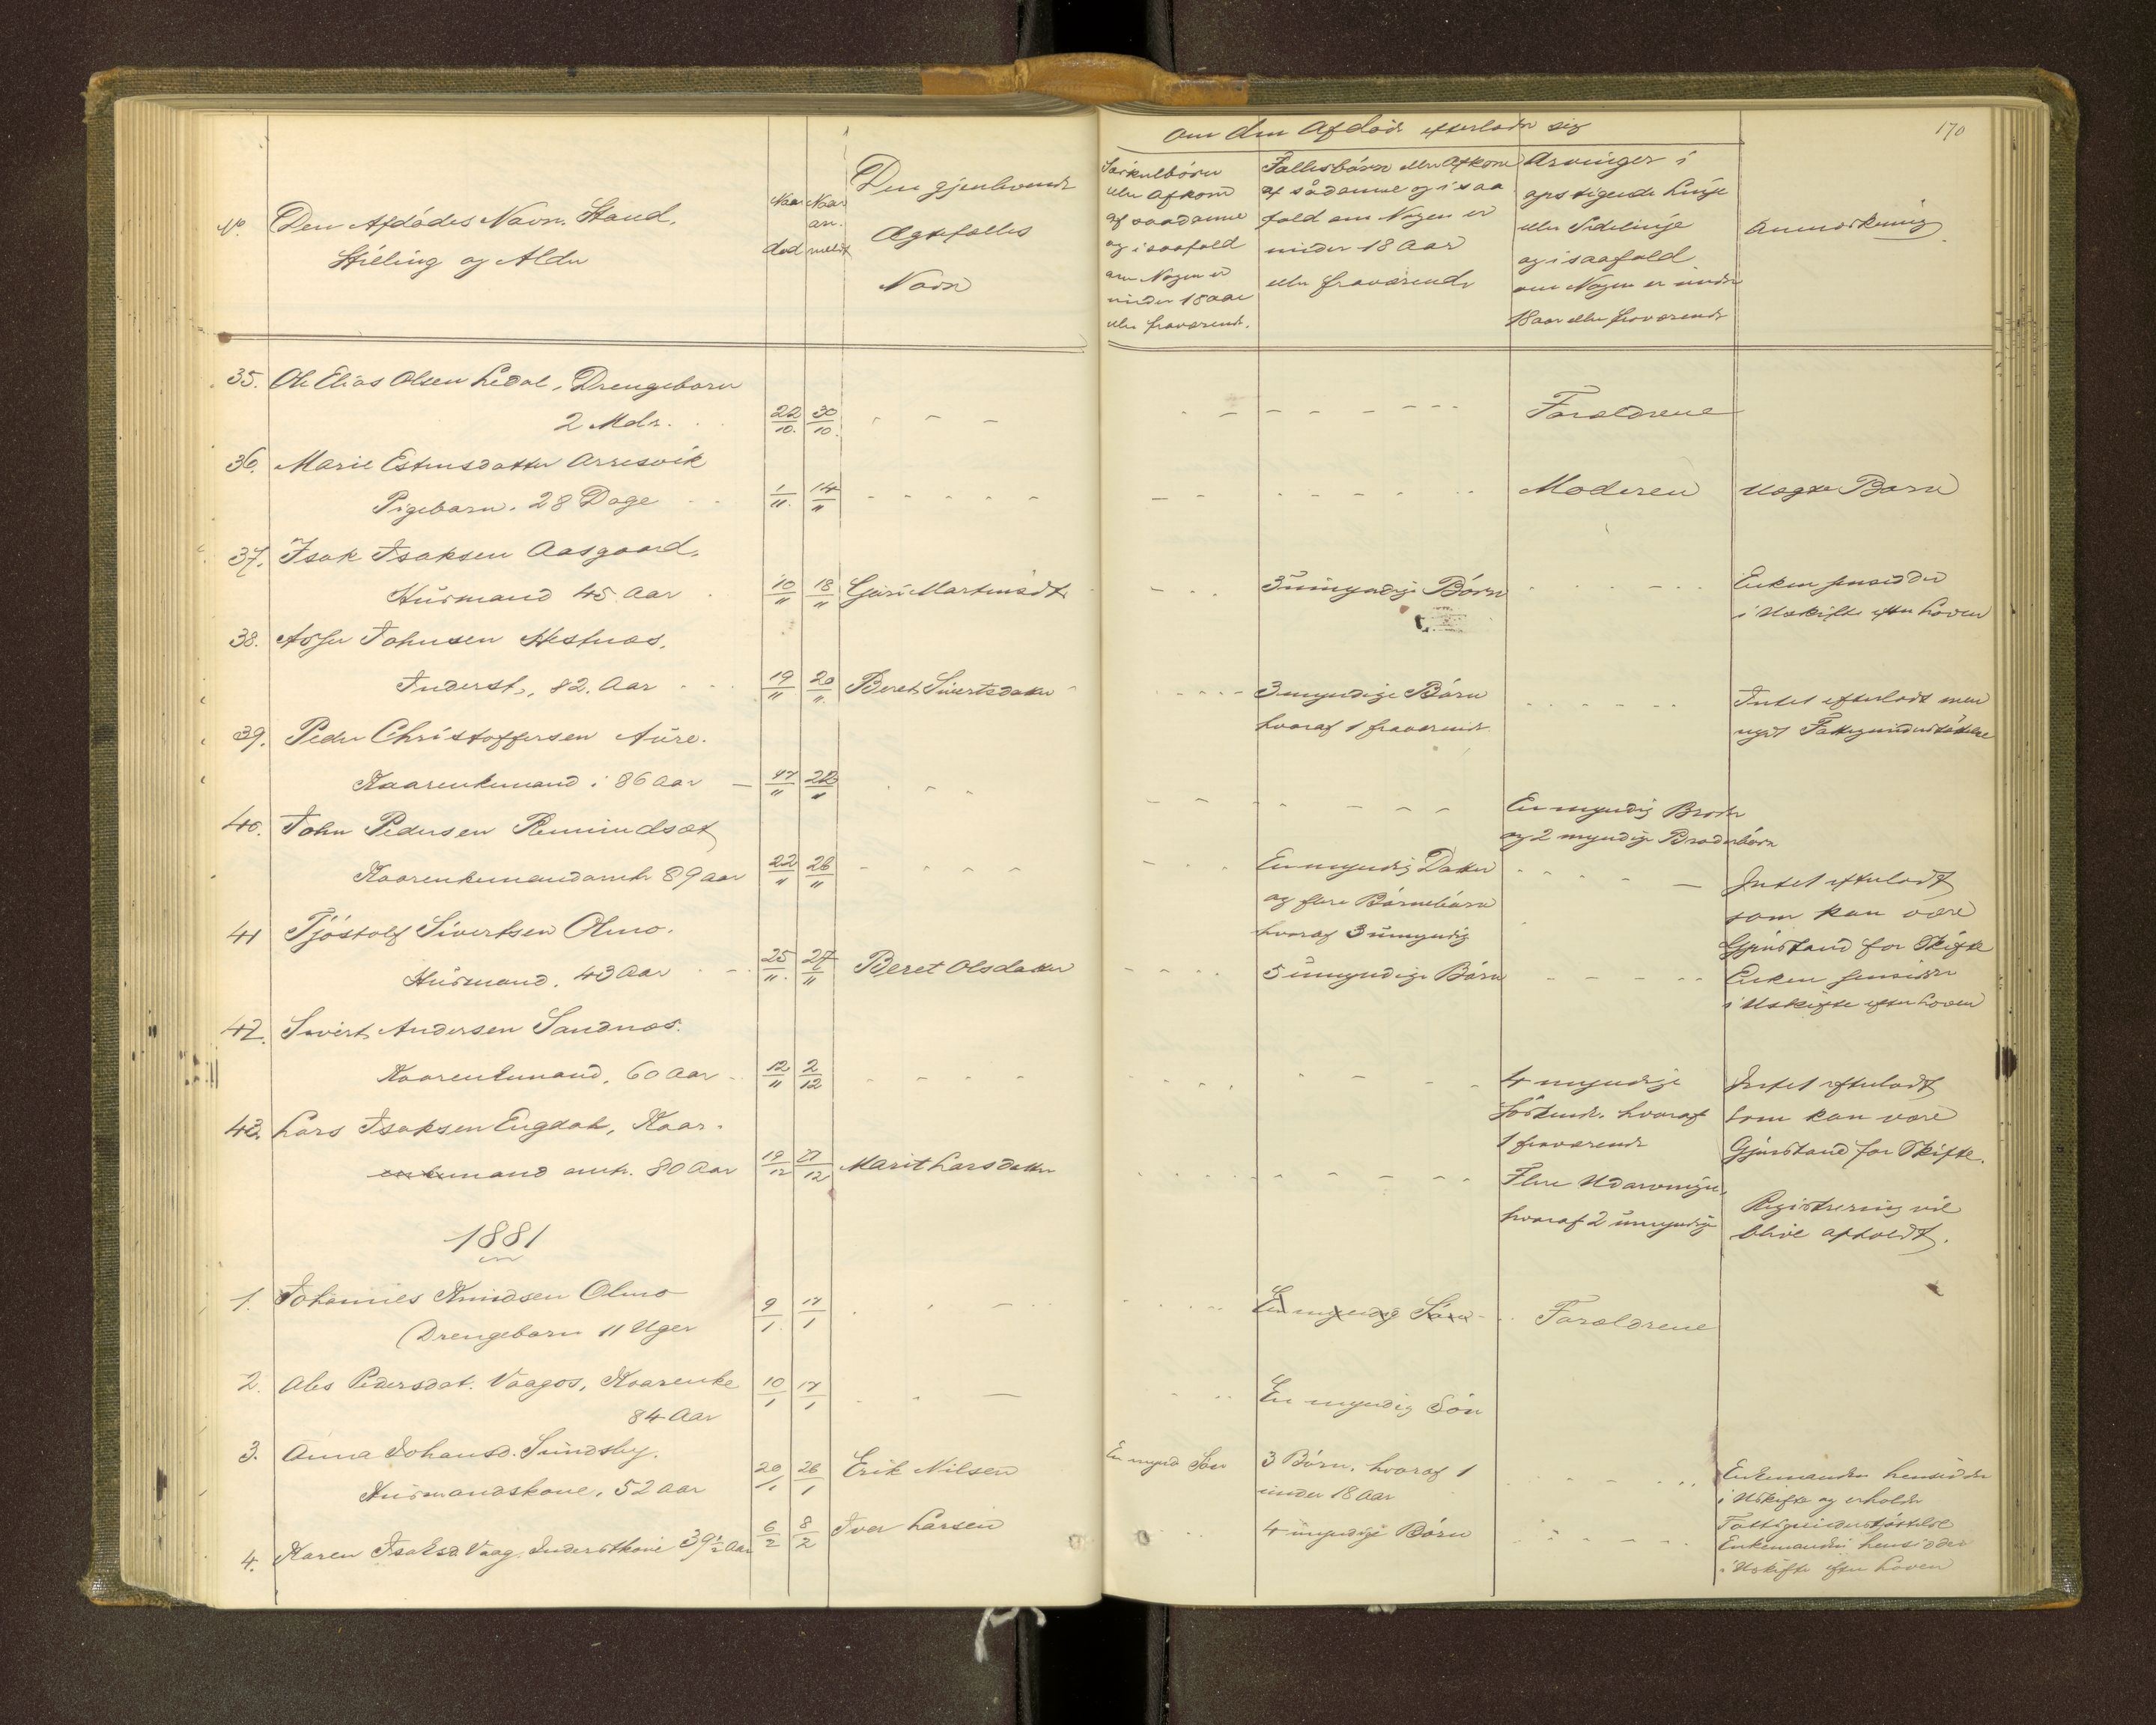 170
Om den Afdøde efterlader sig
No.
Den Afdødes Navn, Stand,
Stilling og Alder
Naar
død
Naar
an-
meldt
Den gjenlevende
Ægtefælles
Navn
Særkulbørn
eller Afkom
af saadanne
og i saafald
om Nogen er
under 18 aar
eller fraværende.
Fællesbørn eller Afkom
af sådanne og i saa
fald om Nogen er
under 18 Aar
eller fraværende
Arvinger i
opstigende Linje
eller Sidelinje
og i saafald
om Nogen er under
18 aar eller fraværende
Anmærkning
35. Ole Elias Olsen Ledal, Drengebarn
2 Mdr. 22/10. 30/10. Forældrene
36. Marie Estensdatter Arresvik
Pigebarn. 28 Dage 1/11. 14/11 Moderen uægte Barn
37. Isak Isaksen Aasgaard,
Husmand 45 Aar 10/11 18/11 Guri Martinsdt. 3 umyndige Børn Enken hensidder
i Uskifte efter Loven
38. Johnsen Hestnæs,
Inderst, 82 Aar 19/11 20/11 Beret Sivertsdatter 3 myndige Børn
hvoraf 1 fraværende
Intet efterladt men
nydt Fattigunderstøttelse
39. Peder Christoffersen Aure.
Kaarenkemand i 86 Aar 17/11 22/11 En myndig Broder
og 2 myndige Broderbørn
40. John Pedersen Remmindsæt
Kaarenkemand omtr. 89 aar 22/11 26/11 En myndig Datter
og flere Børnebørn
hvoraf 3 umyndig
Intet efterladt
som kan være
Gjenstand for Skifte
41 Tjøstolf Sivertsen Olmo.
Husmand, 43 Aar 25/11. 27/11 Beret Olsdatter 5 umyndige Børn Enken hensidder
i Uskifte efter Loven
42. Sivert Andersen Sandnæs.
Kaarenkemand, 60 Aar 12/11 2/12 4 myndige
Søskende, hvoraf
1 fraværende
Intet efterladt
som kan være
Gjenstand for Skifte.
43. Lars Isaksen Engdal, Kaar-
enkemand omtr. 80 Aar 19/12 21/12 Marit Larsdatter Flere Udarvinger,
hvoraf 2 umyndige
Registrering vil
blive afholdt.
1881
1. Johannes Knudsen Olmo
Drengebarn 11 Uger 9/1. 17/1 En myndig Søn Forældrene
2. Ales Pedersdat. Vaagos, Kaarenke
84 Aar 10/1 17/1 En myndig Søn
3. Anna Johansd. Sundsby.
Husmandskone, 52 Aar 20/1 26/1 Erik Nilsen En mynd Søn 3 Børn, hvoraf 1
under 18 Aar
Enkemanden hensidder
i Uskifte og erholder
Fattigunderstøttelse
4. Karen Isaksd. Vaag. Inderstkone 39½ Aar 6/2 8/2 Iver Larsen 4 umyndige Børn Enkemanden hensidder
i Uskifte efter Loven